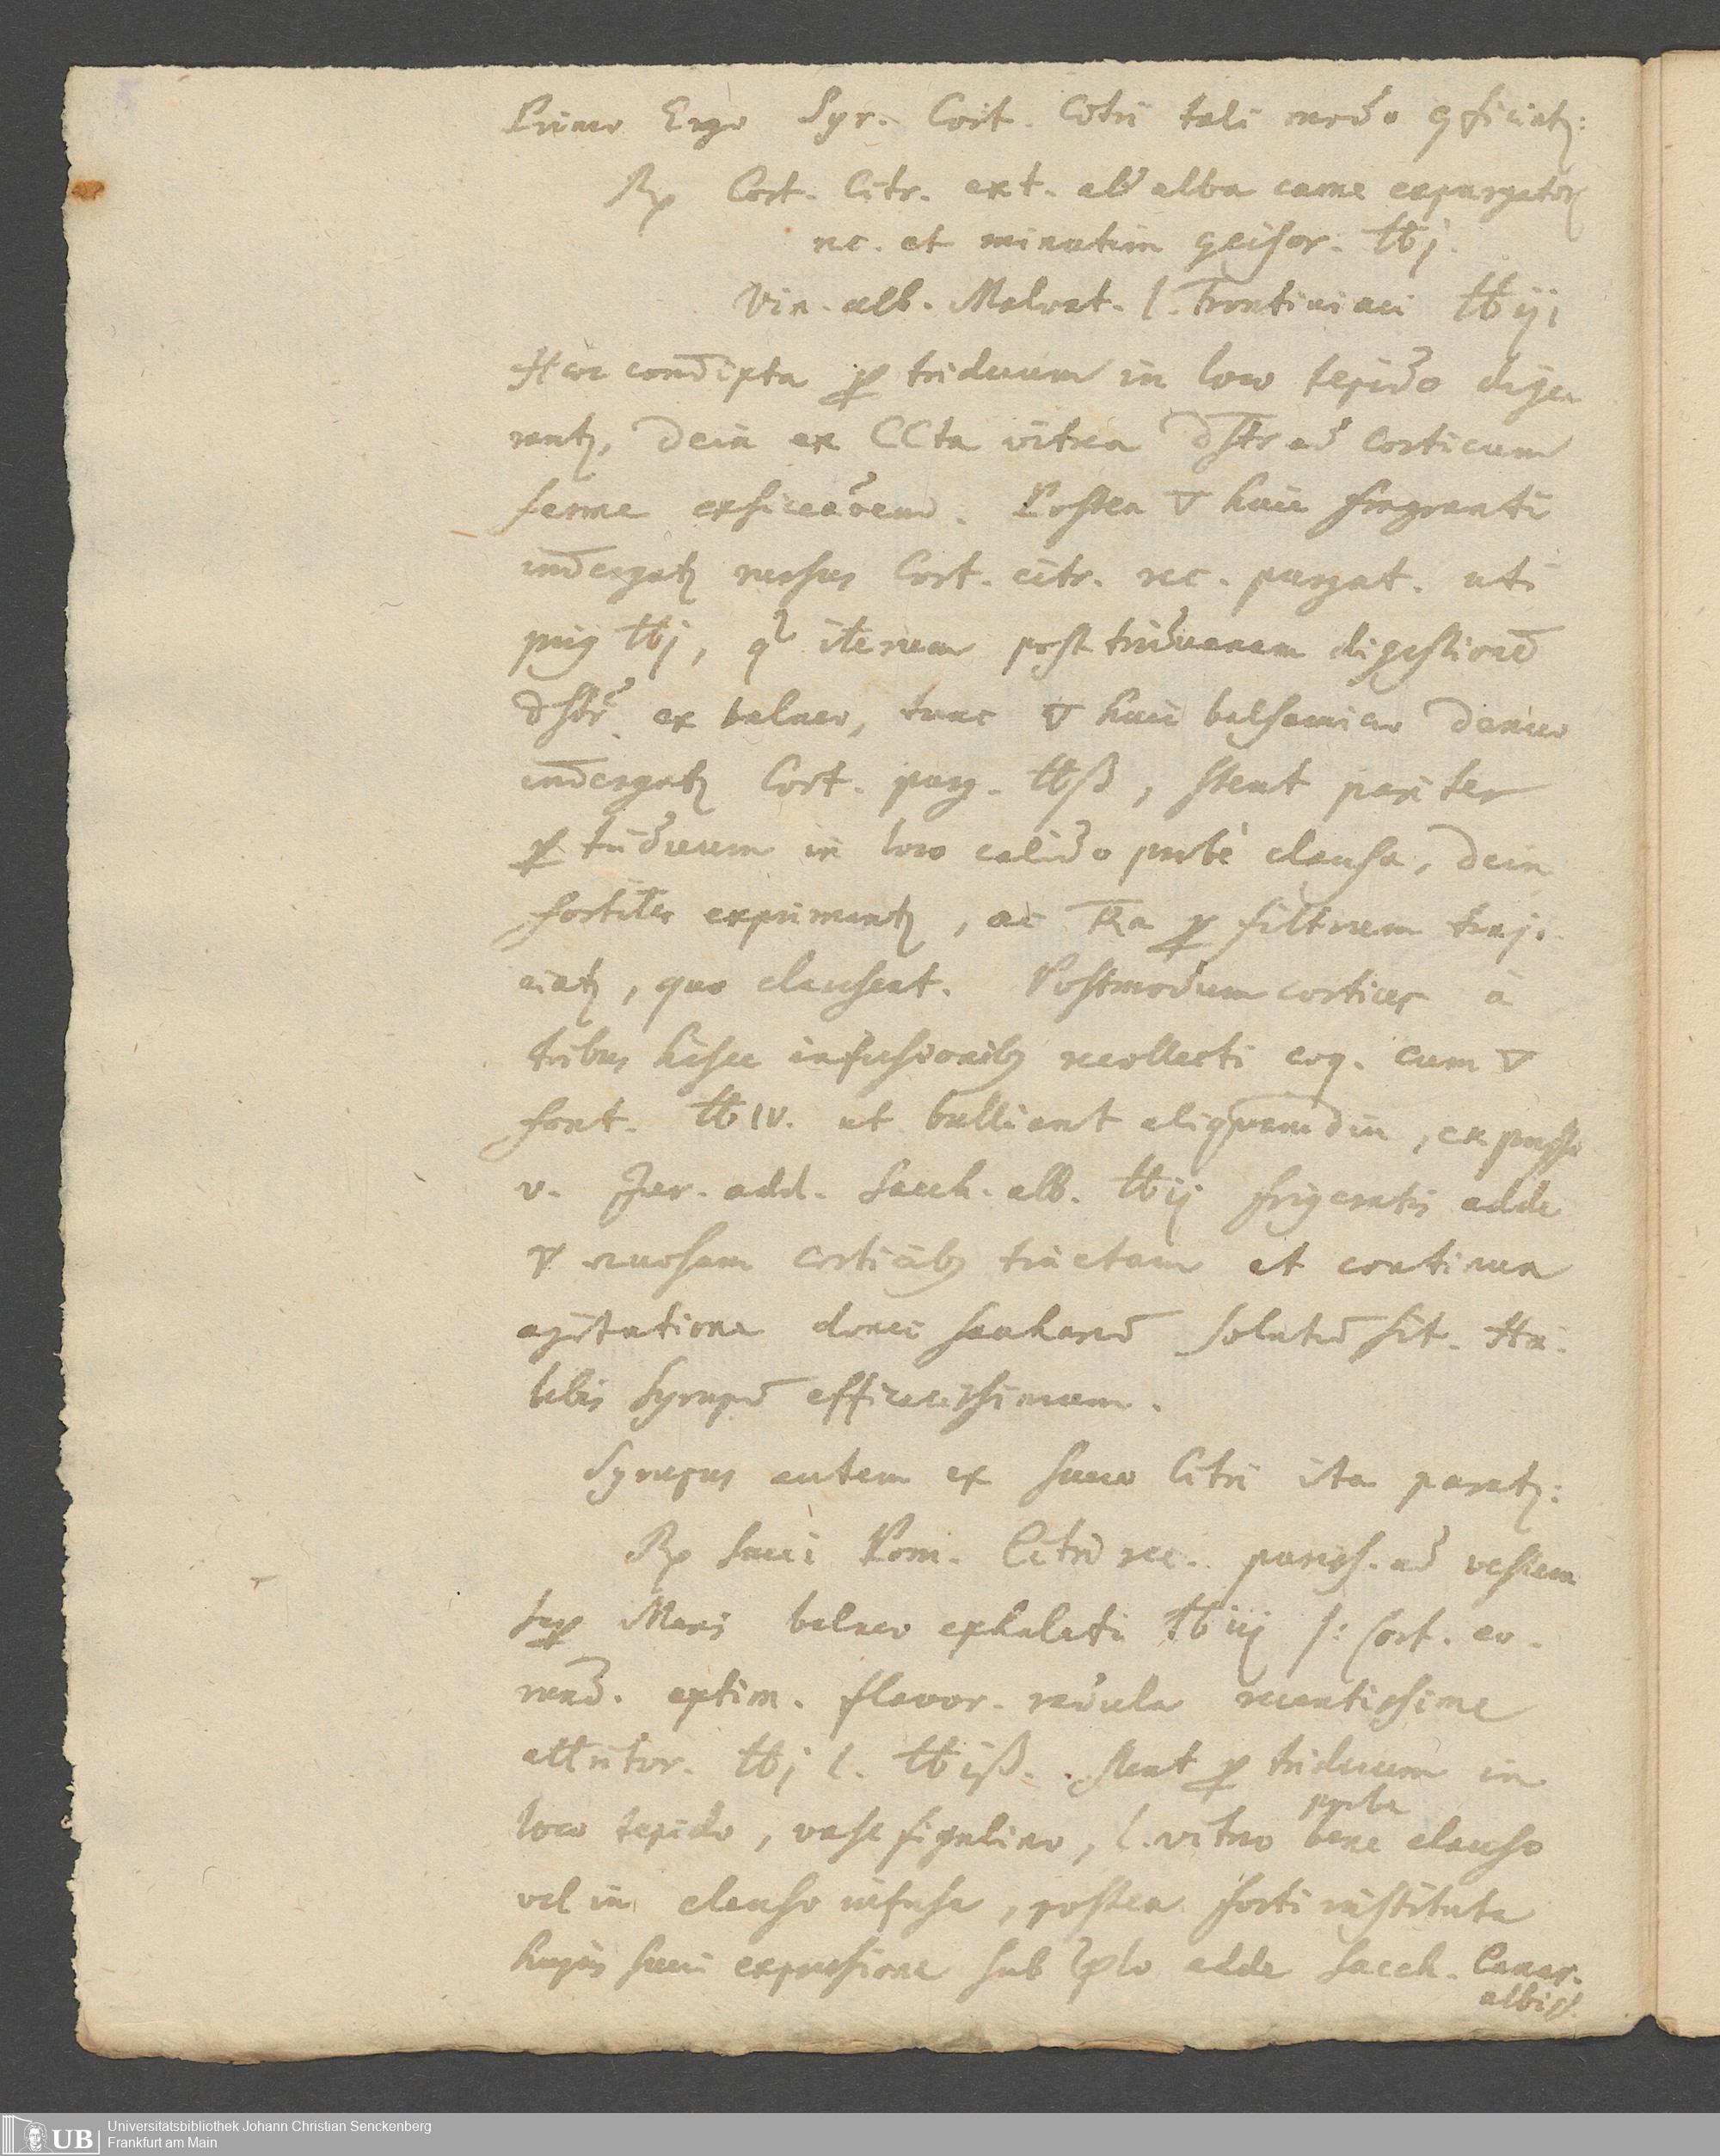 Primo Ergo Syr. Cort. Citri tali modo 9ficiatɀ:
℞ Cort. Citr. ext. ab alba carne expurgator
rec. et minutim 9cisor. ℔j.
Vin. alb. Malvat. l. Frontiniaci ℔iij
Haec condirta ꝑ triduum in loco tepido dige
rantɀ, dein ex CCta vitrea dstr ad corticum
ferme exsiccaōem. Postea ▽ huic fragranti
inderga​tɀ rursus Cort. citr. rec. purgat. uti
pri9 ℔j, q iterum post triduanam digestionē
dstr ex balneo, tunc ▽ huic balsamico denuo
indergatɀ Cort. purg. ℔ß, stent pariter
ꝑ triduum in loco calido probè clausa, dein
fortiter exprimantɀ, ac Tra ꝑ filtrum traji
ciatɀ, quo clarescat. Postmodum cortices à
tribus hisce infusionibɀ recollecti coq. cum ▽
font. ℔IV. ut bulliant aliquamdiu, expresso
v. Jur. add. Sacch. alb. ℔ij frigeratis adde
▽ vinosam corticibɀ tinctam et continua
agitatione donec saccharū solutū sit. Ha
bebis Syrupū efficacissimum.
Syrupus autem ex succo Citri ita paratɀ:
℞ Succi Pom. Citri rec. ad
suꝑ Maris balneo exhalati ℔iij s: Cort. eo-
rund. extim. flavor. radula recentissime
attritor. ℔j l. ℔iß. stent ꝑ triduum in
probe
loco tepido, vase figulino, l. vitreo bene clauso
vel in clauso infusa, postea forti instituta
hujus succi expressione sub adde Sacch. Canar.
albiss.
Universitätsbibliothek Johann Christian Senckenberg
Frankfurt am Main
UB